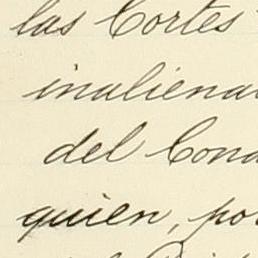 las Cortes
inaliena
del Cond
quien, por